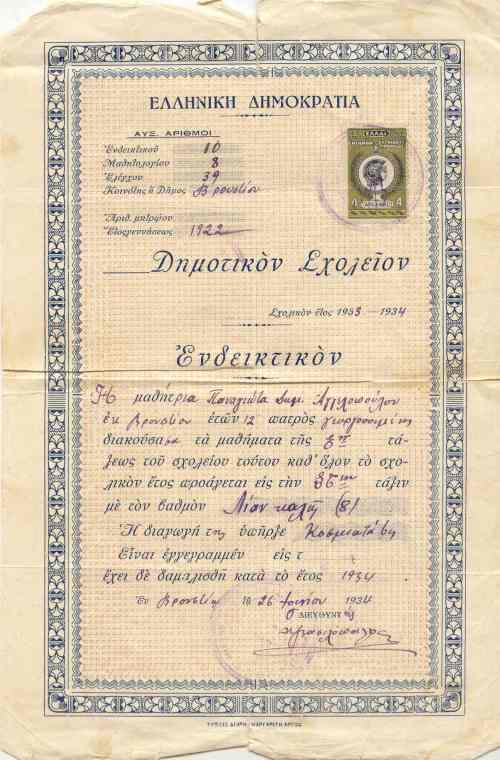 ΕΛΛΗΝΙΚΗ ΔΗΜΟΚΡΑΤΙΑ
ΑΥΞ. ΑΡΙΘΜΟΙ
Ἐνδεικτικοῦ 10
Μαθητολογίου 8
Ἐλέγχου 39
Κοινότης ἢ Δῆμος Βρουστίου
Ἀριθ. μητρῴου
Ἔτος γεννήσεως 1922
ΕΛΛΑΣ
4 4
Δημοτικὸν Σχολεῖον
Σχολικὸν ἔτος 1933 - 1934
Ἐνδεικτικὸν
Ἡ μαθήτρια Παναγιώτα Δημ. Αγγελοπούλου
ἐκ Βρουστίου ἐτῶν 12 πατρὸς
διακούσασα τὰ μαθήματα τῆς τά-
ξεως τοῦ σχολείου τούτου καθ' ὅλον τὸ σχο-
λικὸν ἔτος προάγεται εἰς τὴν τάξιν
μὲ τὸν βαθμὸν Λίαν καλῶς (8)
Ἡ διαγωγή της ὑπῆρξε Κοσμιωτάτη
Εἶναι ἐγγεγραμμέν εἰς τ
ἔχει δὲ δαμαλισθῆ κατὰ τὸ ἔτος 1934
Ἐν Βρουστίῳ τῇ 26 Ἰουνίου 1934
Ὁ ΔΙΕΥΘΥΝΤΗΣ